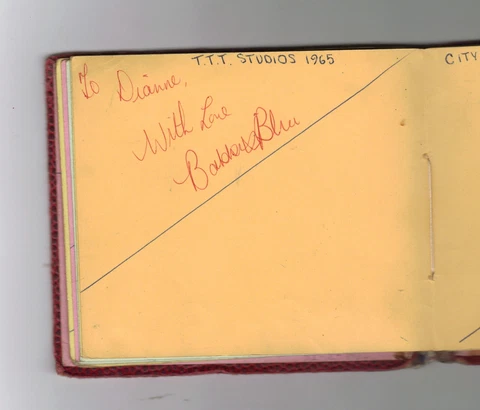 T.T.T. STUDIOS 1965
CITY
To Dianne,
With Love
Blue